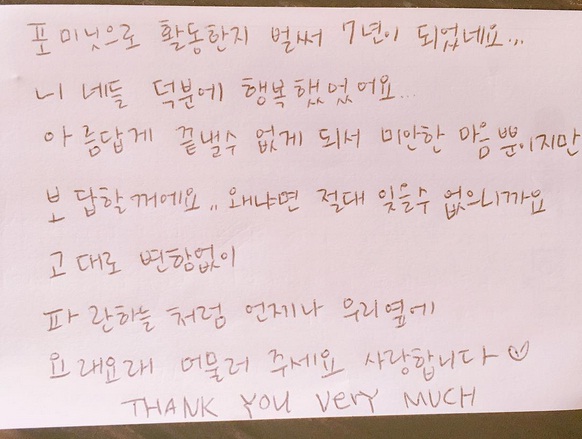 포 미닛으로 활동한지 벌써 7년이 되었네요...
니 네들 덕분에 행복했었어요...
아 름답게 끝낼수 없게 되서 미안한 마음뿐이지만
보 답할꺼에요.. 왜냐면 절대 잊을수 없으니까요
고 대로 변함없이
파 란하늘 처럼 언제나 우리옆에
요 래요래 머물러 주세요 사랑합니다♡
THANK YOU VERY MUCH